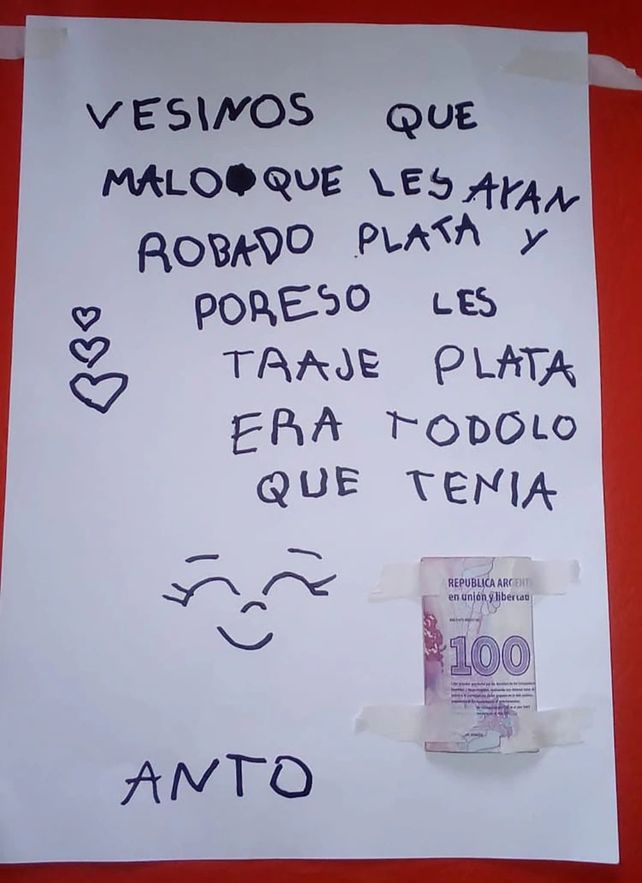 VESINOS QUE
MALO QUE LES AYAN
ROBADO PLATA Y
PORESO LES
TRAJE PLATA
ERA TODOLO
QUE TENIA
REPUBLICA ARGENTI
en unión y libertad
100
ANTO